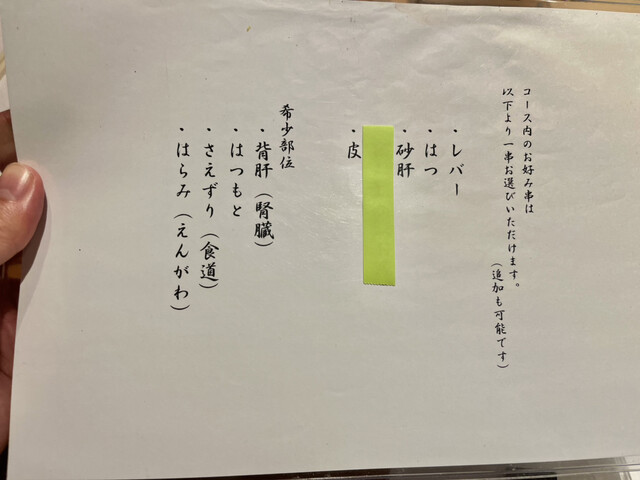 コース内のお好み串は
以下より一串お選びいただけます。
（追加も可能です）
・レバー
・はつ
・砂肝
・皮
希少部位
・背肝（腎臓）
・はつもと
・さえずり（食道）
・はらみ（えんがわ）